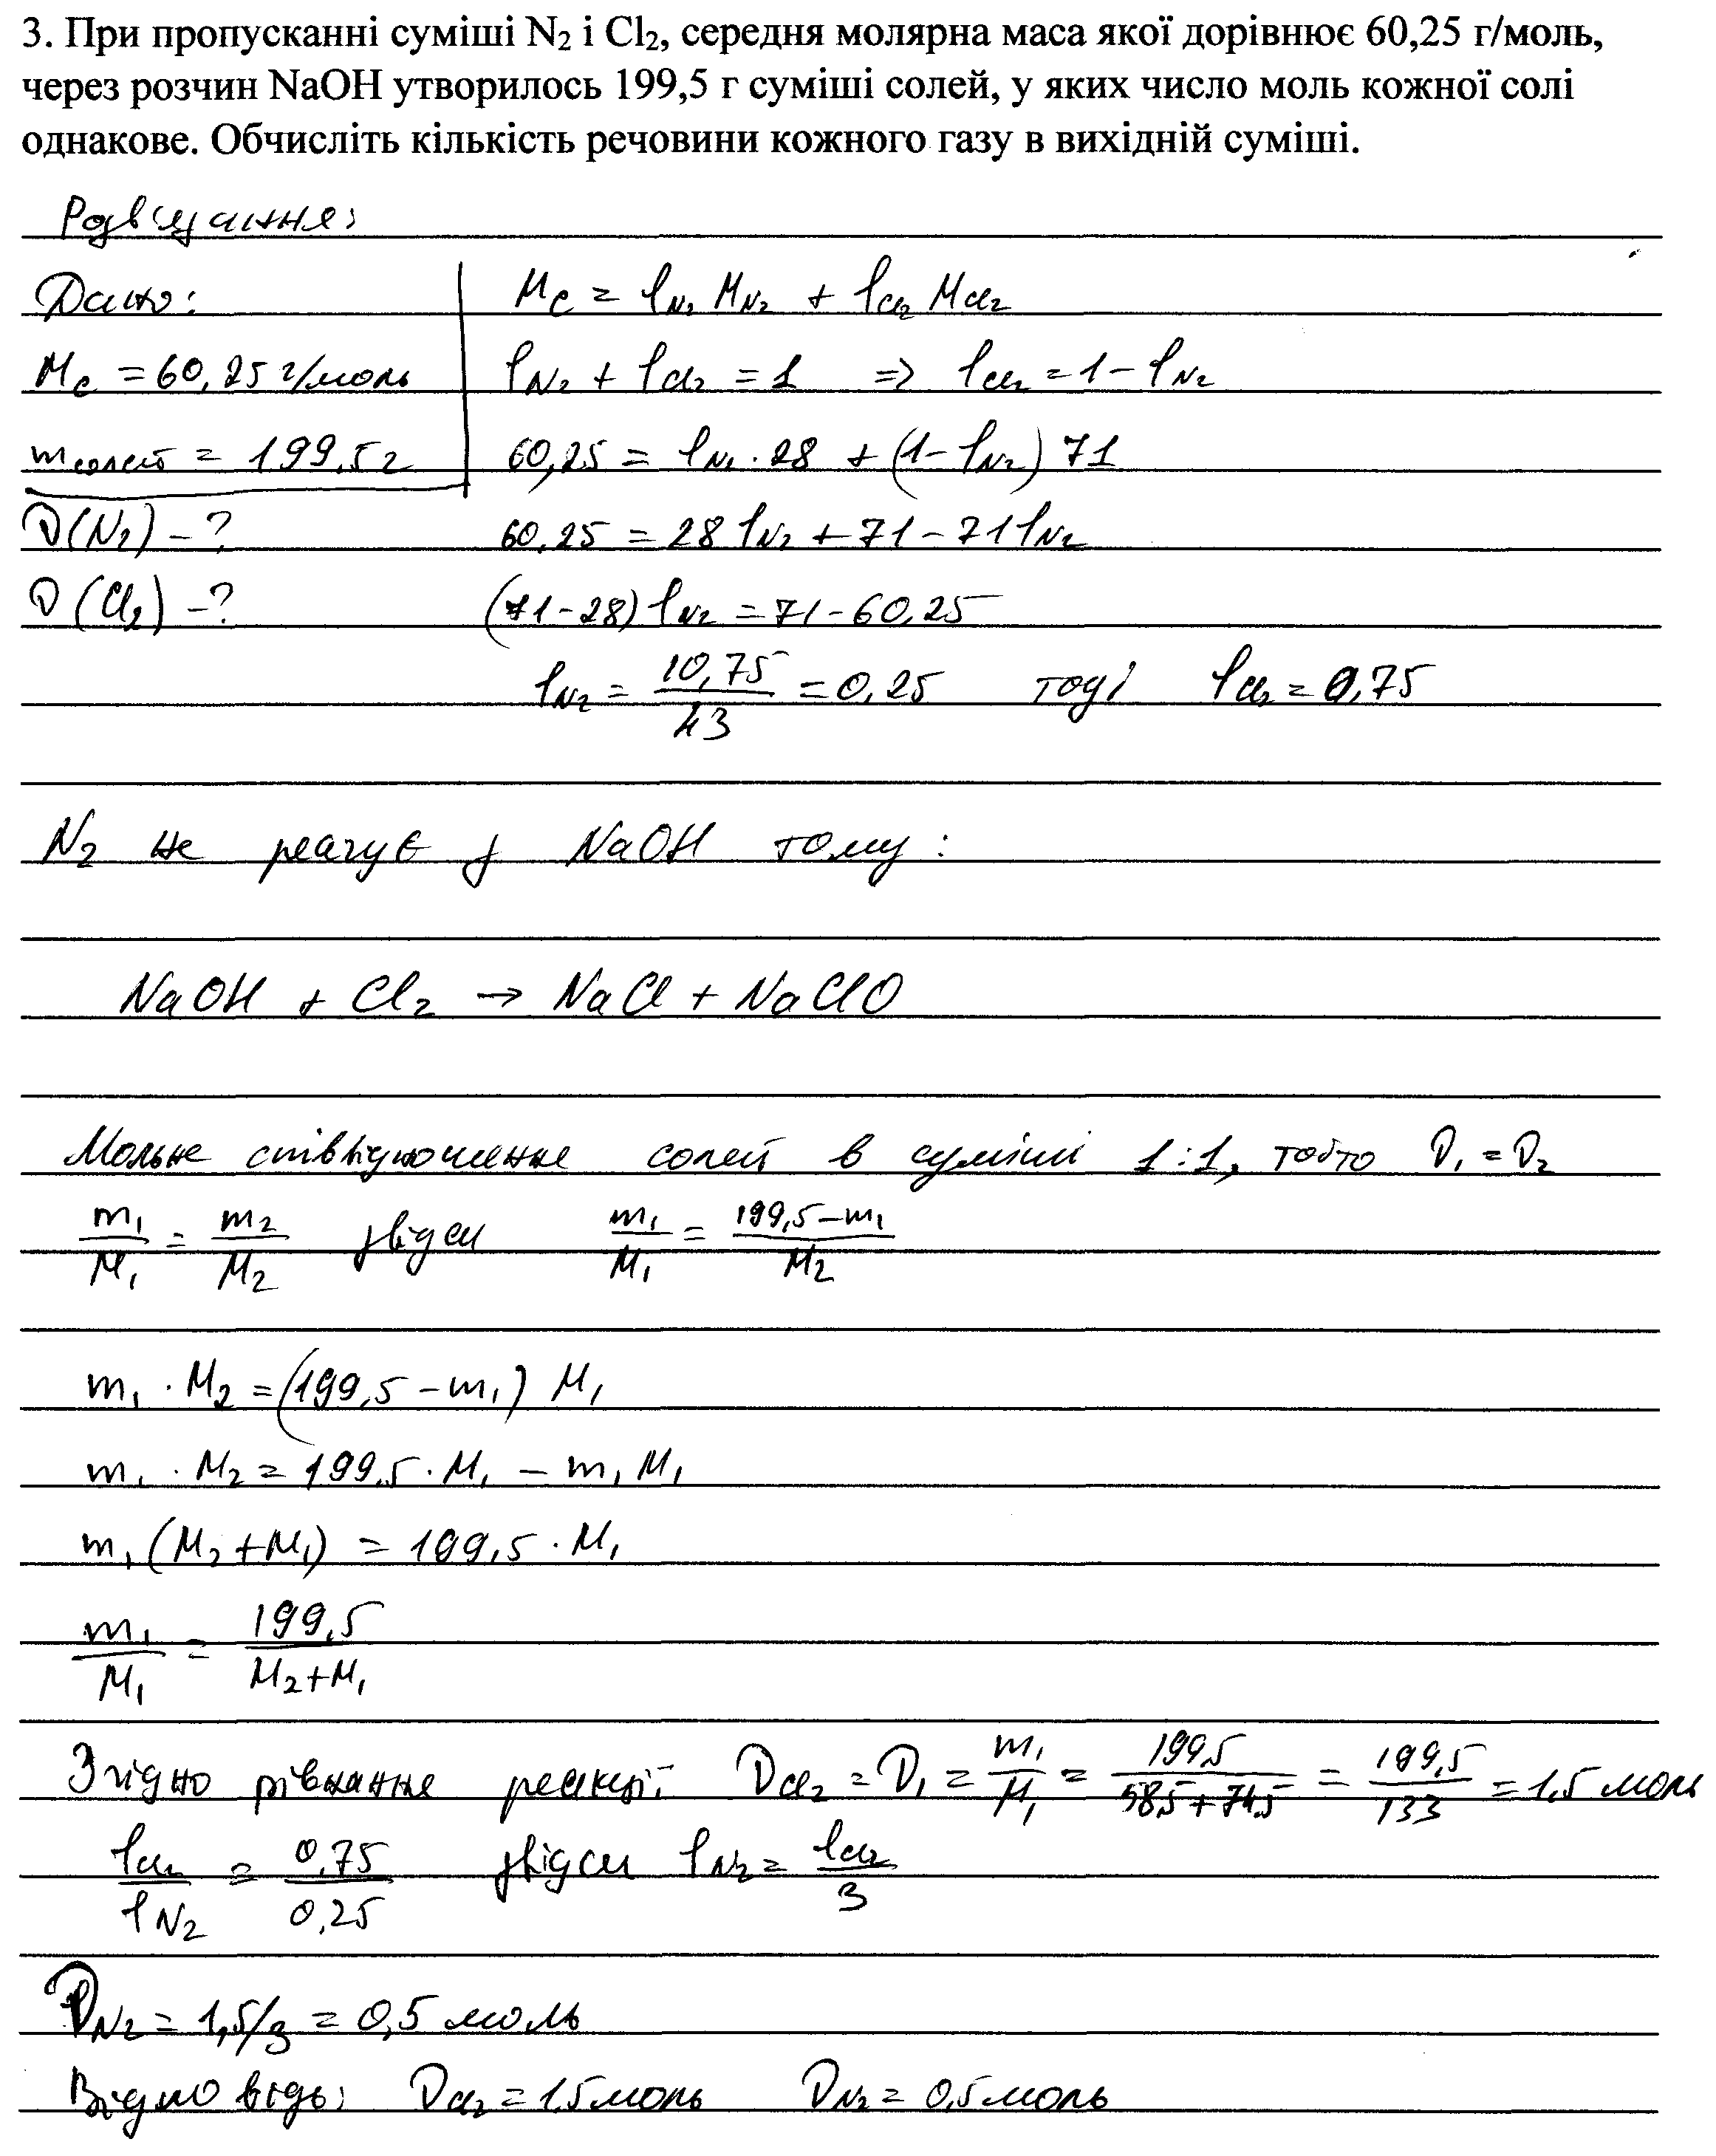 3. При пропусканні суміші N₂ і Cl₂, середня молярна маса якої дорівнює 60,25 г/моль,
через розчин NaOH утворилось 199,5 г суміші солей, у яких число моль кожної солі
однакове. Обчисліть кількість речовини кожного газу в вихідній суміші.
Розв'язання:
Дано: Mc = φN₂ MN₂ + φCl₂ MCl₂
Mc = 60,25 г/моль φN₂ + φCl₂ = 1 => φCl₂ = 1 - φN₂
mсолей = 199,5 г 60,25 = φN₂ · 28 + (1 - φN₂) 71
ν(N₂) - ? 60,25 = 28 φN₂ + 71 - 71 φN₂
ν(Cl₂) - ? (71-28) φN₂ = 71 - 60,25
φN₂ = 10,75/43 = 0,25 тоді φCl₂ = 0,75
N₂ не реагує з NaOH тому:
NaOH + Cl₂ → NaCl + NaClO
Мольне співвідношення солей в суміші 1:1, тобто ν₁ = ν₂
m₁/M₁ = m₂/M₂ звідси m₁/M₁ = (199,5 - m₁)/M₂
m₁ · M₂ = (199,5 - m₁) M₁
m₁ · M₂ = 199,5 · M₁ - m₁ M₁
m₁ (M₂ + M₁) = 199,5 · M₁
m₁/M₁ = 199,5/(M₂ + M₁)
Згідно рівняння реакції: νCl₂ = ν₁ = m₁/M₁ = 199,5/(58,5 + 74,5) = 199,5/133 = 1,5 моль
φCl₂/φN₂ = 0,75/0,25 звідси φN₂ = φCl₂/3
νN₂ = 1,5/3 = 0,5 моль
Відповідь: νCl₂ = 1,5 моль νN₂ = 0,5 моль